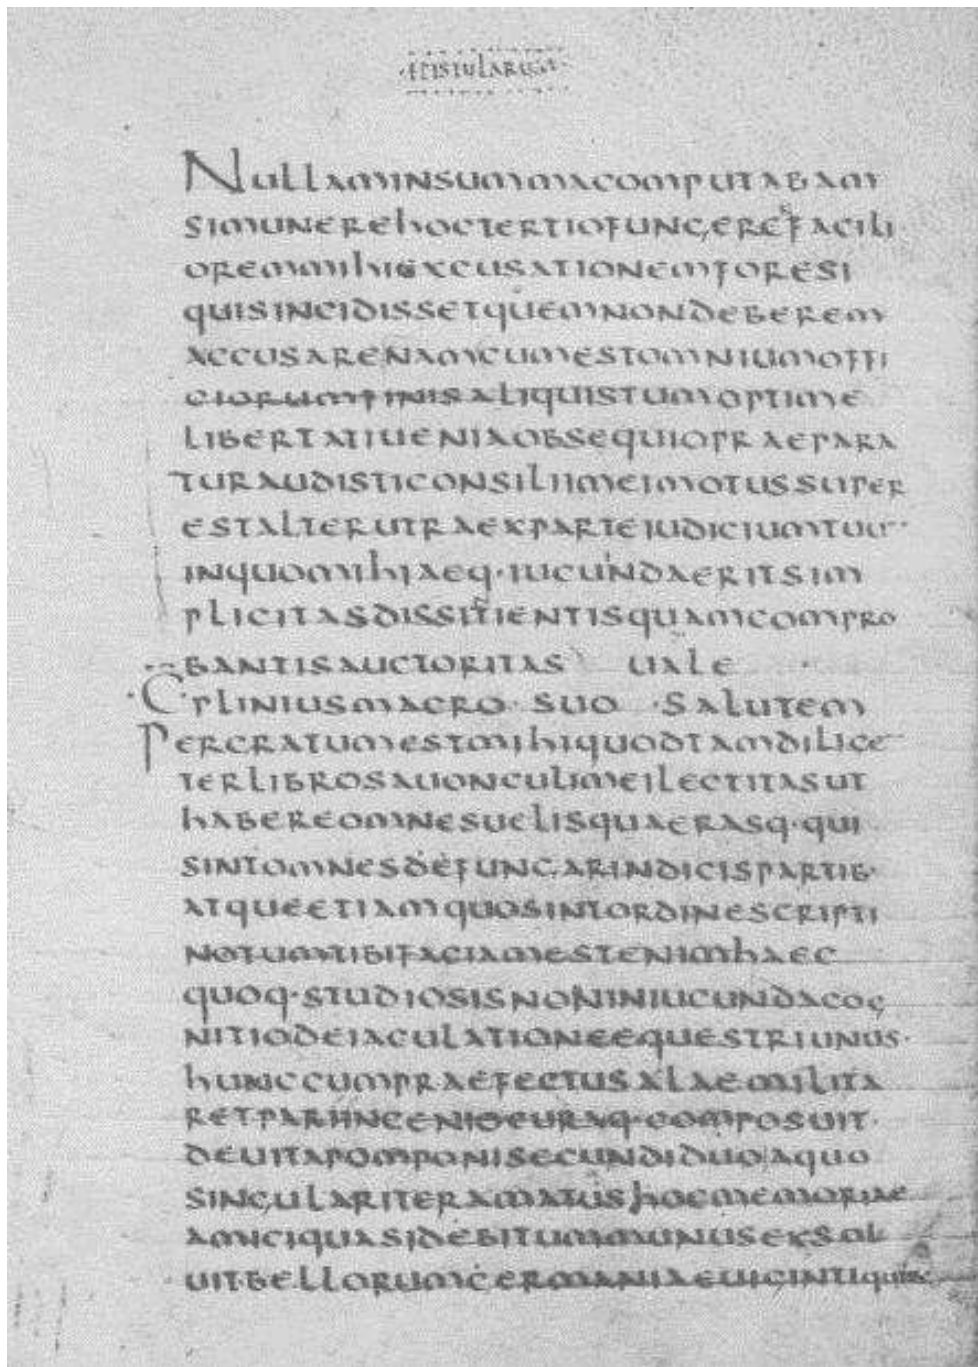 ·EPISTULARUM·
NULLAMINSUMMACOMPUTABAM
SIMUNEREHOCTERTIOFUNGERERFACILI
OREMMIHIEXCUSATIONEMFORESI
QUISINCIDISSETQUEMNONDEBEREM
ACCUSARENAMCUMESTOMNIUMOFFI
CIORUMFINISALIQUISTUMOPTIME
LIBERTATIUENIAOBSEQUIOPRAEPARA
TURAUDISTICONSILIIMEIMOTUSSUPER
ESTALTERUTRAEXPARTEIUDICIUMTUU
INQUOMIHIAEQ·IUCUNDAERITSIM
PLICITASDISSITIENTISQUAMCOMPRO
BANTISAUCTORITAS UALE
·C·PLINIUSMACRO·SUO·SALUTEM
PERGRATUMESTMIHIQUODTAMDILIGE
TERLIBROSAUONCULIMEILECTITASUT
HABEREOMNESUELISQUAERASQ·QUI
SINTOMNESDEFUNGARINDICISPARTIB·
ATQUEETIAMQUOSINTORDINESCRIPTI
NOTUMTIBIFACIAMESTENIMHAEC
QUOQ·STUDIOSISNONINIUCUNDACOG
NITIODEIACULATIONEEQUESTRIUNUS·
HUNCCUMPRAEFECTUSALAEMILITA
RETPARIINGENIOCURAQ·COMPOSUIT·
DEUITAPOMPONISECUNDIDUOAQUO
SINGULARITERAMATUSHOCMEMORIAE
AMICIQUASIDEBITUMMUNUSEXSOL
UITBELLORUMGERMANIAEUIGINTIQUIBUS